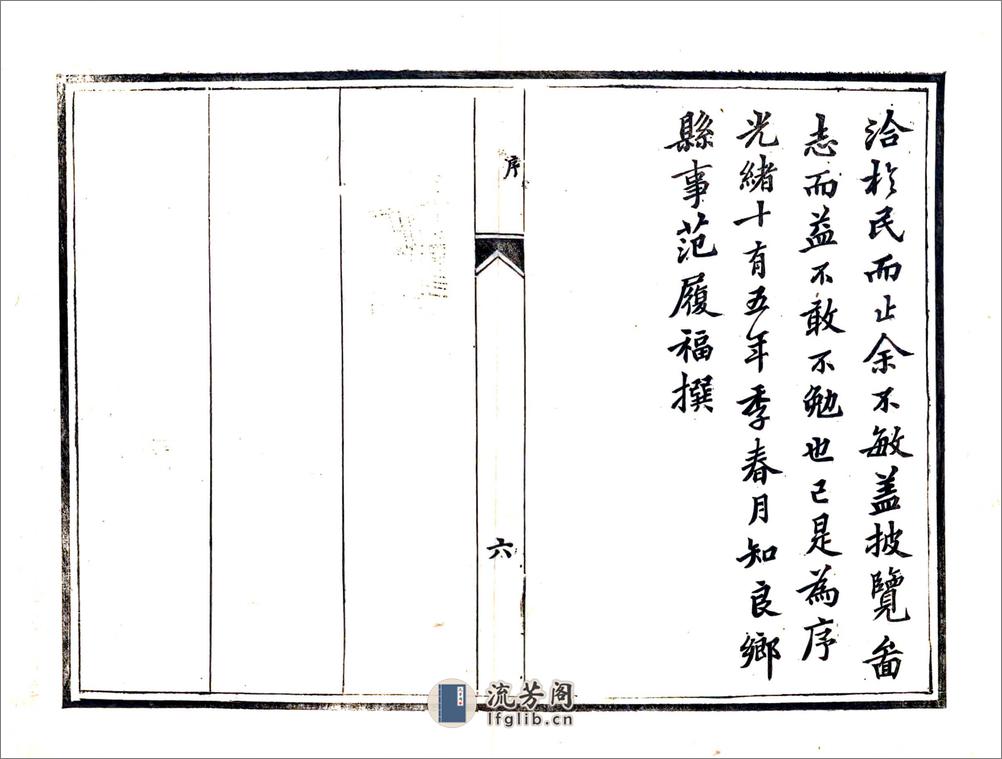 洽於民而止余不敏盖披覽啚
志而益不敢不勉也已是為序
光緒十有五年季春月知良鄉
縣事范履福撰
序
六
流芳阁
lfglib.cn